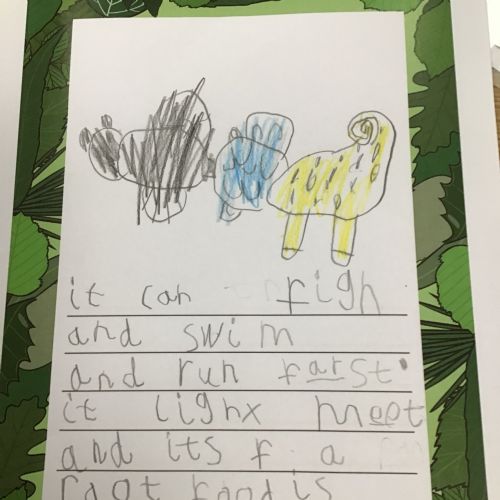 it can righ
and swim
and run farst
it lighx meet
and its f a
raot food is